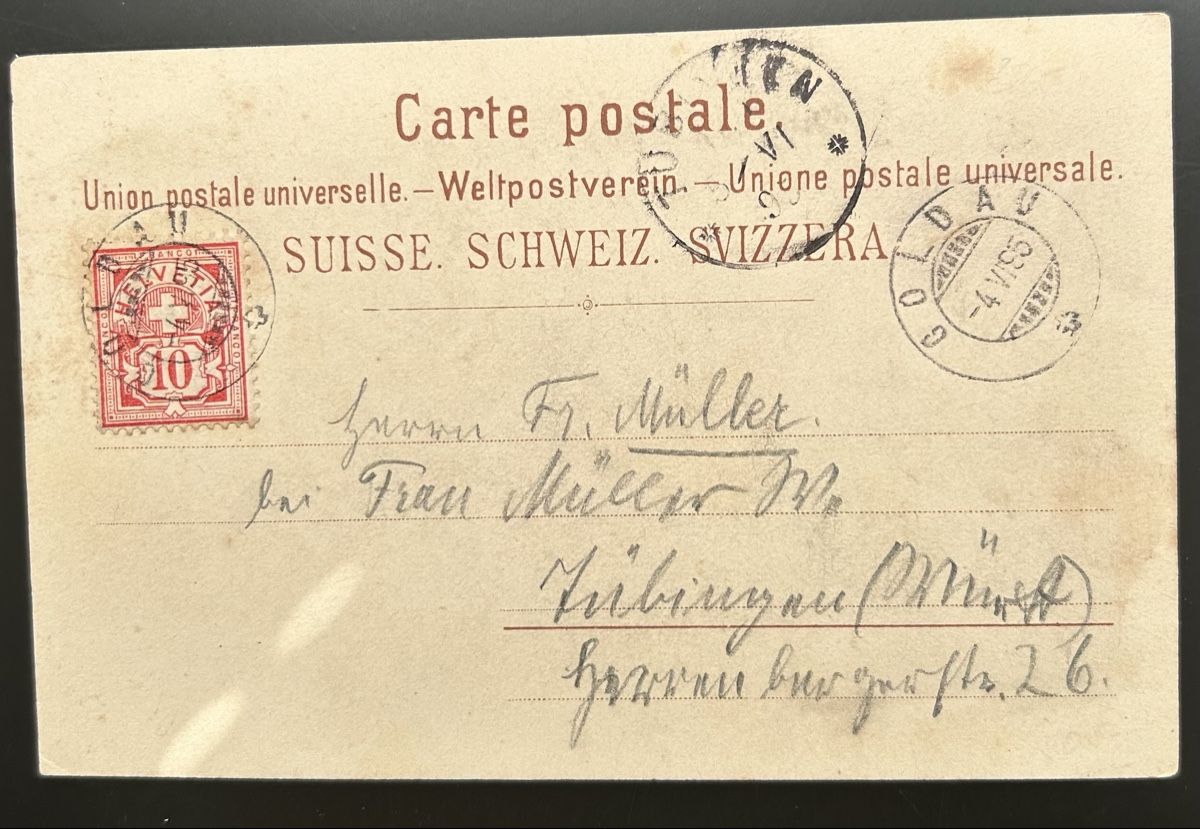 Carte postale.
Union postale universelle. — Weltpostverein. — Unione postale universale.
SUISSE. SCHWEIZ. SVIZZERA
TÜBINGEN
VI
GOLDAU
-4.VI.95
GOLDAU
HELVETIA
FRANCO
10
Herrn Fr. Müller.
bei Frau Müller We
Tübingen (Württ)
Herrenbergerstr. 26.